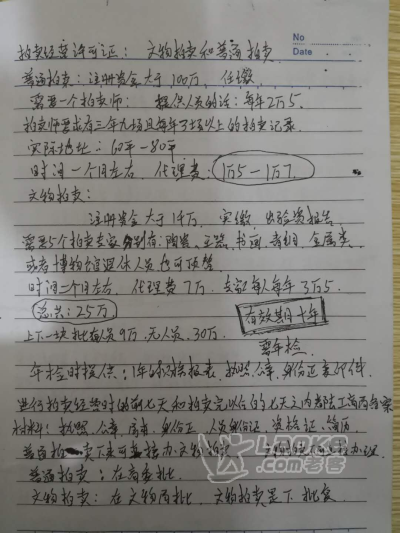 No
Date
拍卖经营许可证: 文物拍卖和普通拍卖
普通拍卖: 注册资金大于100万, 认缴
需要一个拍卖师: 提供人员的话: 每年2万5
拍卖师要求有三年九场且每年3场以上的拍卖记录
实际地址: 60平-80平
时间一个月左右, 代理费: 1万5-1万7
文物拍卖:
注册资金大于1千万, 实缴 出验资报告
需要5个拍卖专家分别有: 陶瓷、玉器、书画、青铜、金属类
或者博物馆退休人员也可以
时间一个月左右, 代理费7万, 专家每人每年3万5
总共: 25万
上下一块批有人员9万, 无人员, 30万
有效期十年
要年检
年检时提供: 1年的财务报表, 执照, 公章, 身份证复印件
进行拍卖经营时的前七天和拍卖完以后的七天之内
材料: 执照, 公章, 身份证, 人员身份证, 资格证、简历
普通拍卖下来可直接办文物拍卖
普通拍卖: 在商委批
文物拍卖: 在文物局批, 文物拍卖是下批
LOOK
老客